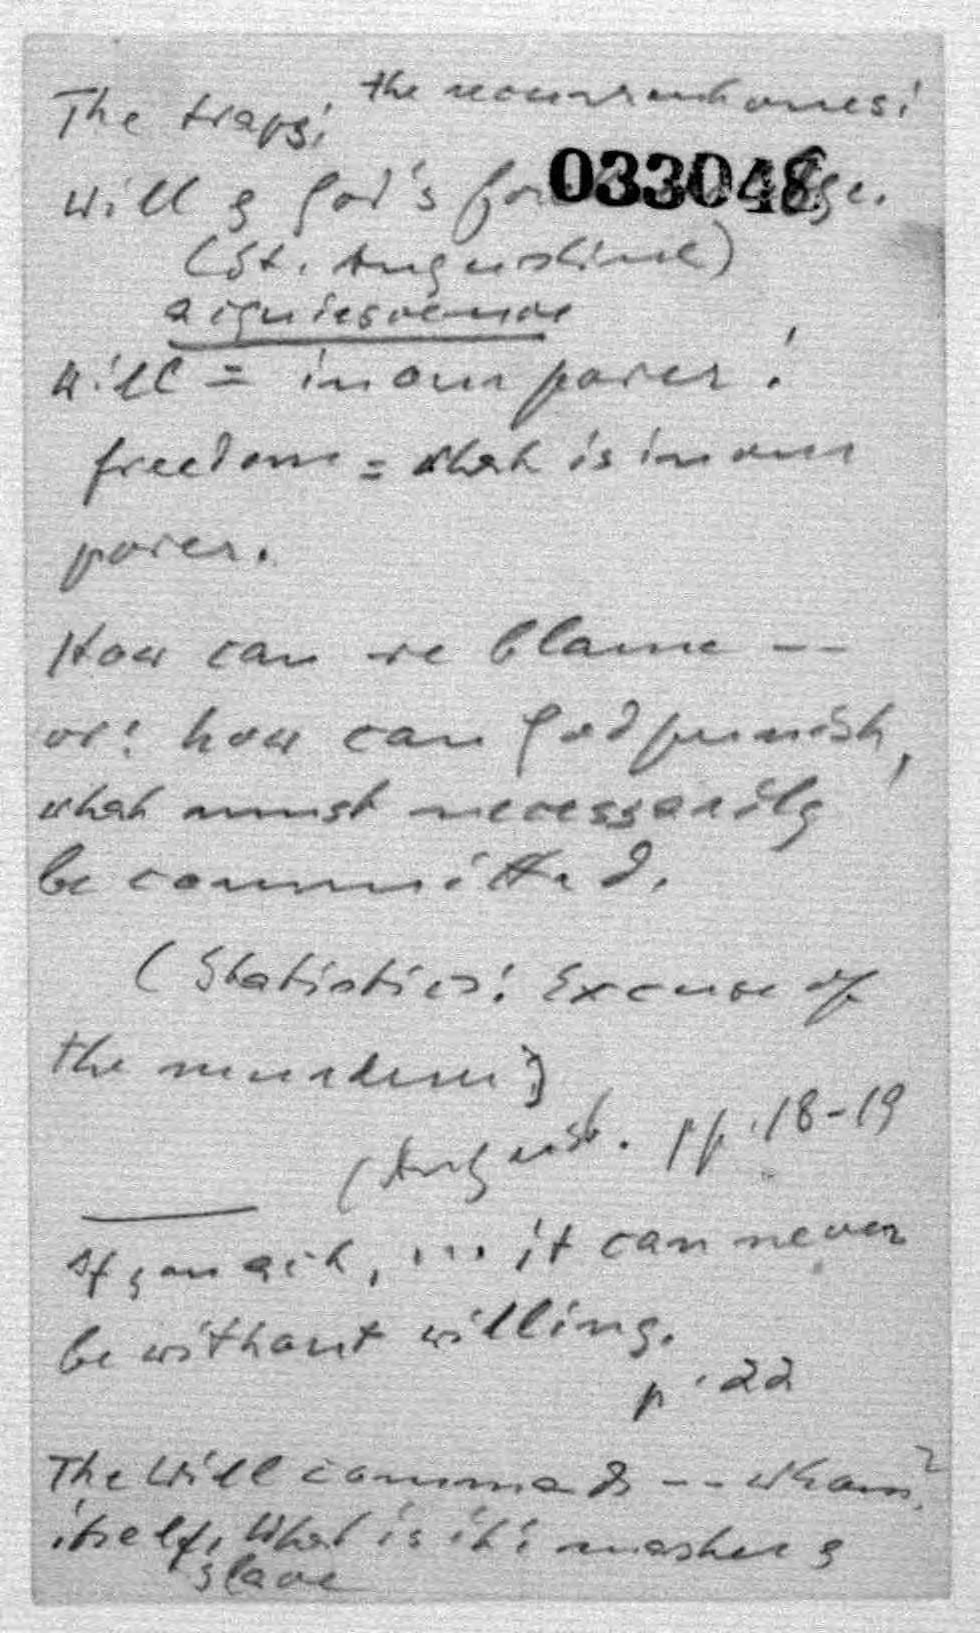 The traps: the recurrent ones:
033048
Will & God's
(St. Augustine)
acquiescence
Will = in our power!
freedom = what is in our
power.
How can we blame --
or: how can God punish,
what must necessarily
be committed.
(Statistics: Excuse of
the murderer)
(August. pp. 18-19
If you ask, ... it can never
be without willing.
p. 22
The Will commands -- whom?
itself, What is it: master &
slave